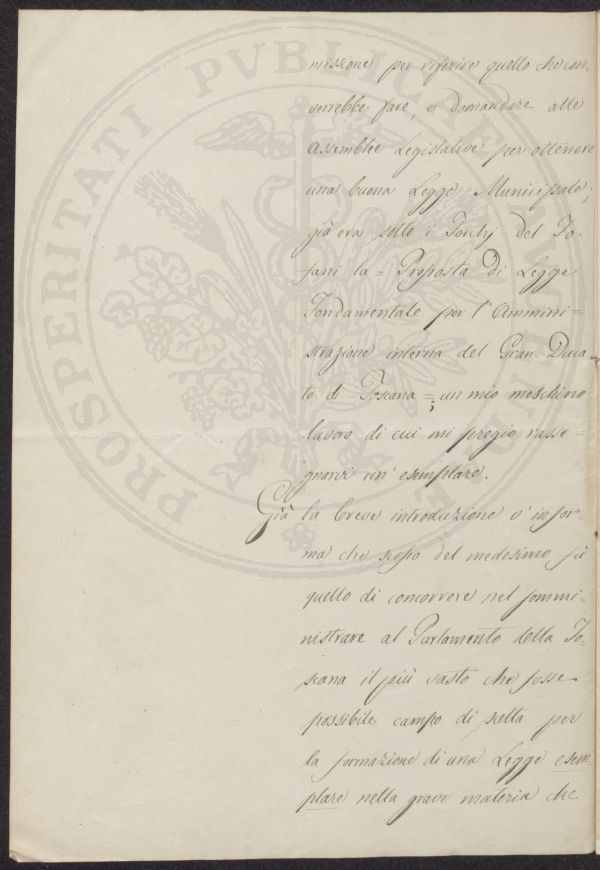 missione per riferire quello che con-
verrebbe fare, e domandare alle
Assemblee Legislative per ottenere
una buona Legge Municipale;
già era sotto i Torchj del To-
fani la = Proposta di Legge
Fondamentale per l'Ammini=
strazione interna del Gran-Duca
to di Toscana =; un mio meschino
lavoro di cui mi pregio rasse=
gnarvi un' esemplare.
Già la breve introduzione v'infor-
ma che scopo del medesimo fù
quello di concorrere nel sommi=
nistrare al Parlamento della To-
scana il più vasto che fosse
possibile campo di scelta per
la formazione di una Legge esem-
plare nella grave materia che
PROSPERITATI PVBLICAE